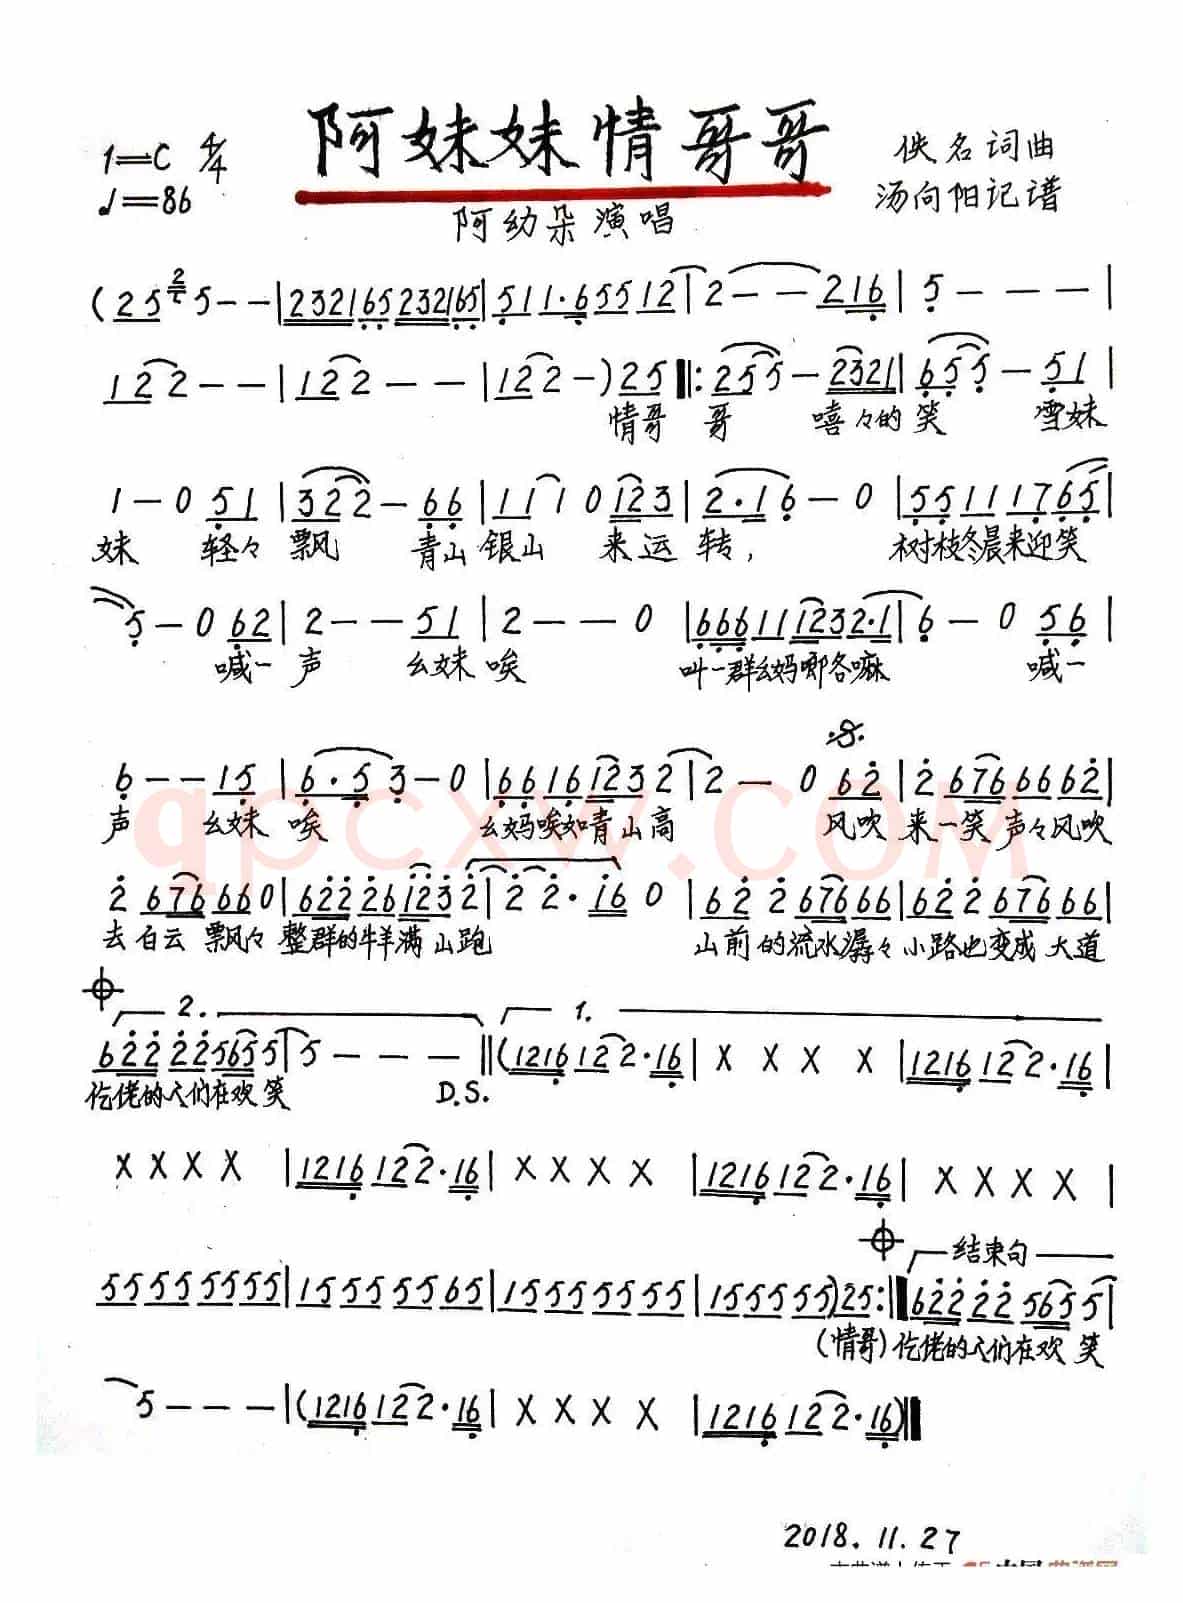 阿妹妹情哥哥
1=C 4/4
♩=86
佚名词曲
汤向阳记谱
阿幼朵演唱
(25 2/7 5--|232165232165|511·65512|2--216|5---|
122--|122--|122-)25‖:255-2321|655-51|
情哥 哥 嘻々的笑 雪妹
1-051|322-66|1110123|2·16-0|55111765|
妹 轻々 飘 青山 银山 来运转, 树枝冬晨来迎笑
5-062|2--51|2--0|666111232·1|6-056|
喊一声 幺妹唉 叫一群幺妈啷各嘛 喊一
𝄋
6--15|6·53-0|66161232|2-062|26766662|
声 幺妹 唉 幺妈唉如青山高 风吹 来一笑声々风吹
2676660|622261232|22·160|62267666|62267666|
去白云 飘々 整群的牛羊满山跑 山前的流水潺々 小路也变成大道
2. 1.
622225655|5---‖(1216122·16|XXXX|1216122·16|
仡佬的人们在欢笑 D.S.
XXXX|1216122·16|XXXX|1216122·16|XXXX|
结束句
55555555|15555565|15555555|155555)25:‖622225655|
(情哥)仡佬的人们在欢笑
5---|(1216122·16|XXXX|1216122·16)‖
2018.11.27
qpcxw.COM